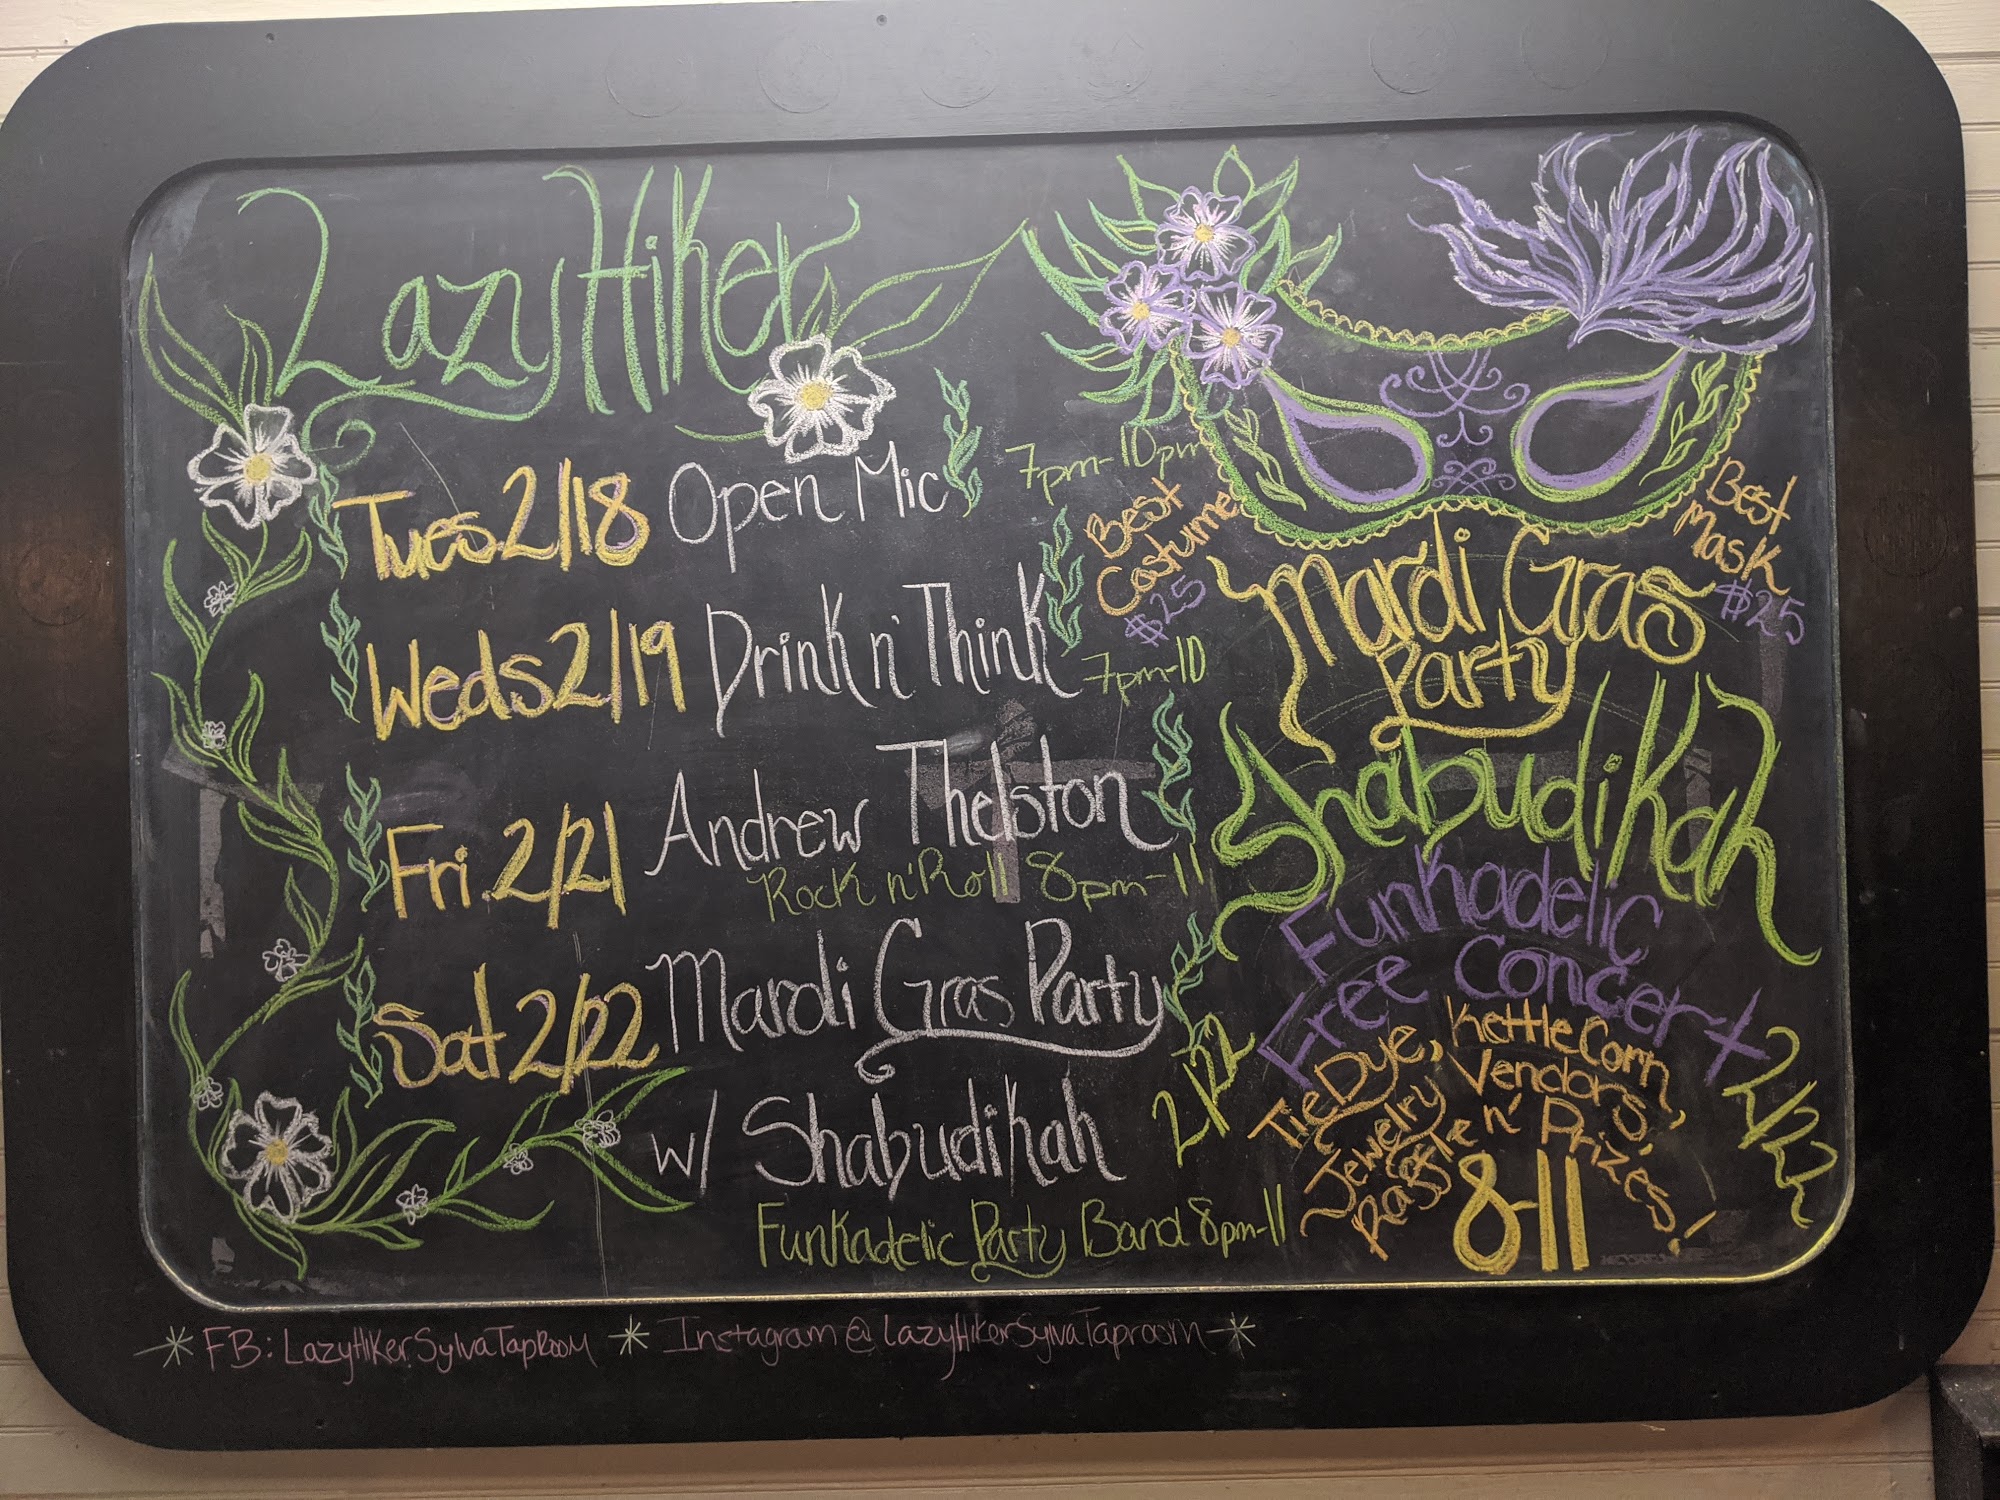 Lazy Hiker
Tues 2/18 Open Mic 7pm-10pm
Weds 2/19 Drink n' Think 7pm-10
Fri 2/21 Andrew Thelston
Rock n' Roll 8pm-11
Sat 2/22 Mardi Gras Party
w/ Shabudikah
Funkadelic Party Band 8pm-11
Best
Costume
$25
Best
Mask
$25
Mardi Gras
Party
Shabudikah
Funkadelic
Free Concert
2/22
2/22
Tie Dye, Kettle Corn,
Jewelry Vendors,
Raffle n' Prizes!
8-11
FB: LazyHikerSylvaTapRoom Instagram @LazyHikerSylvaTaproom